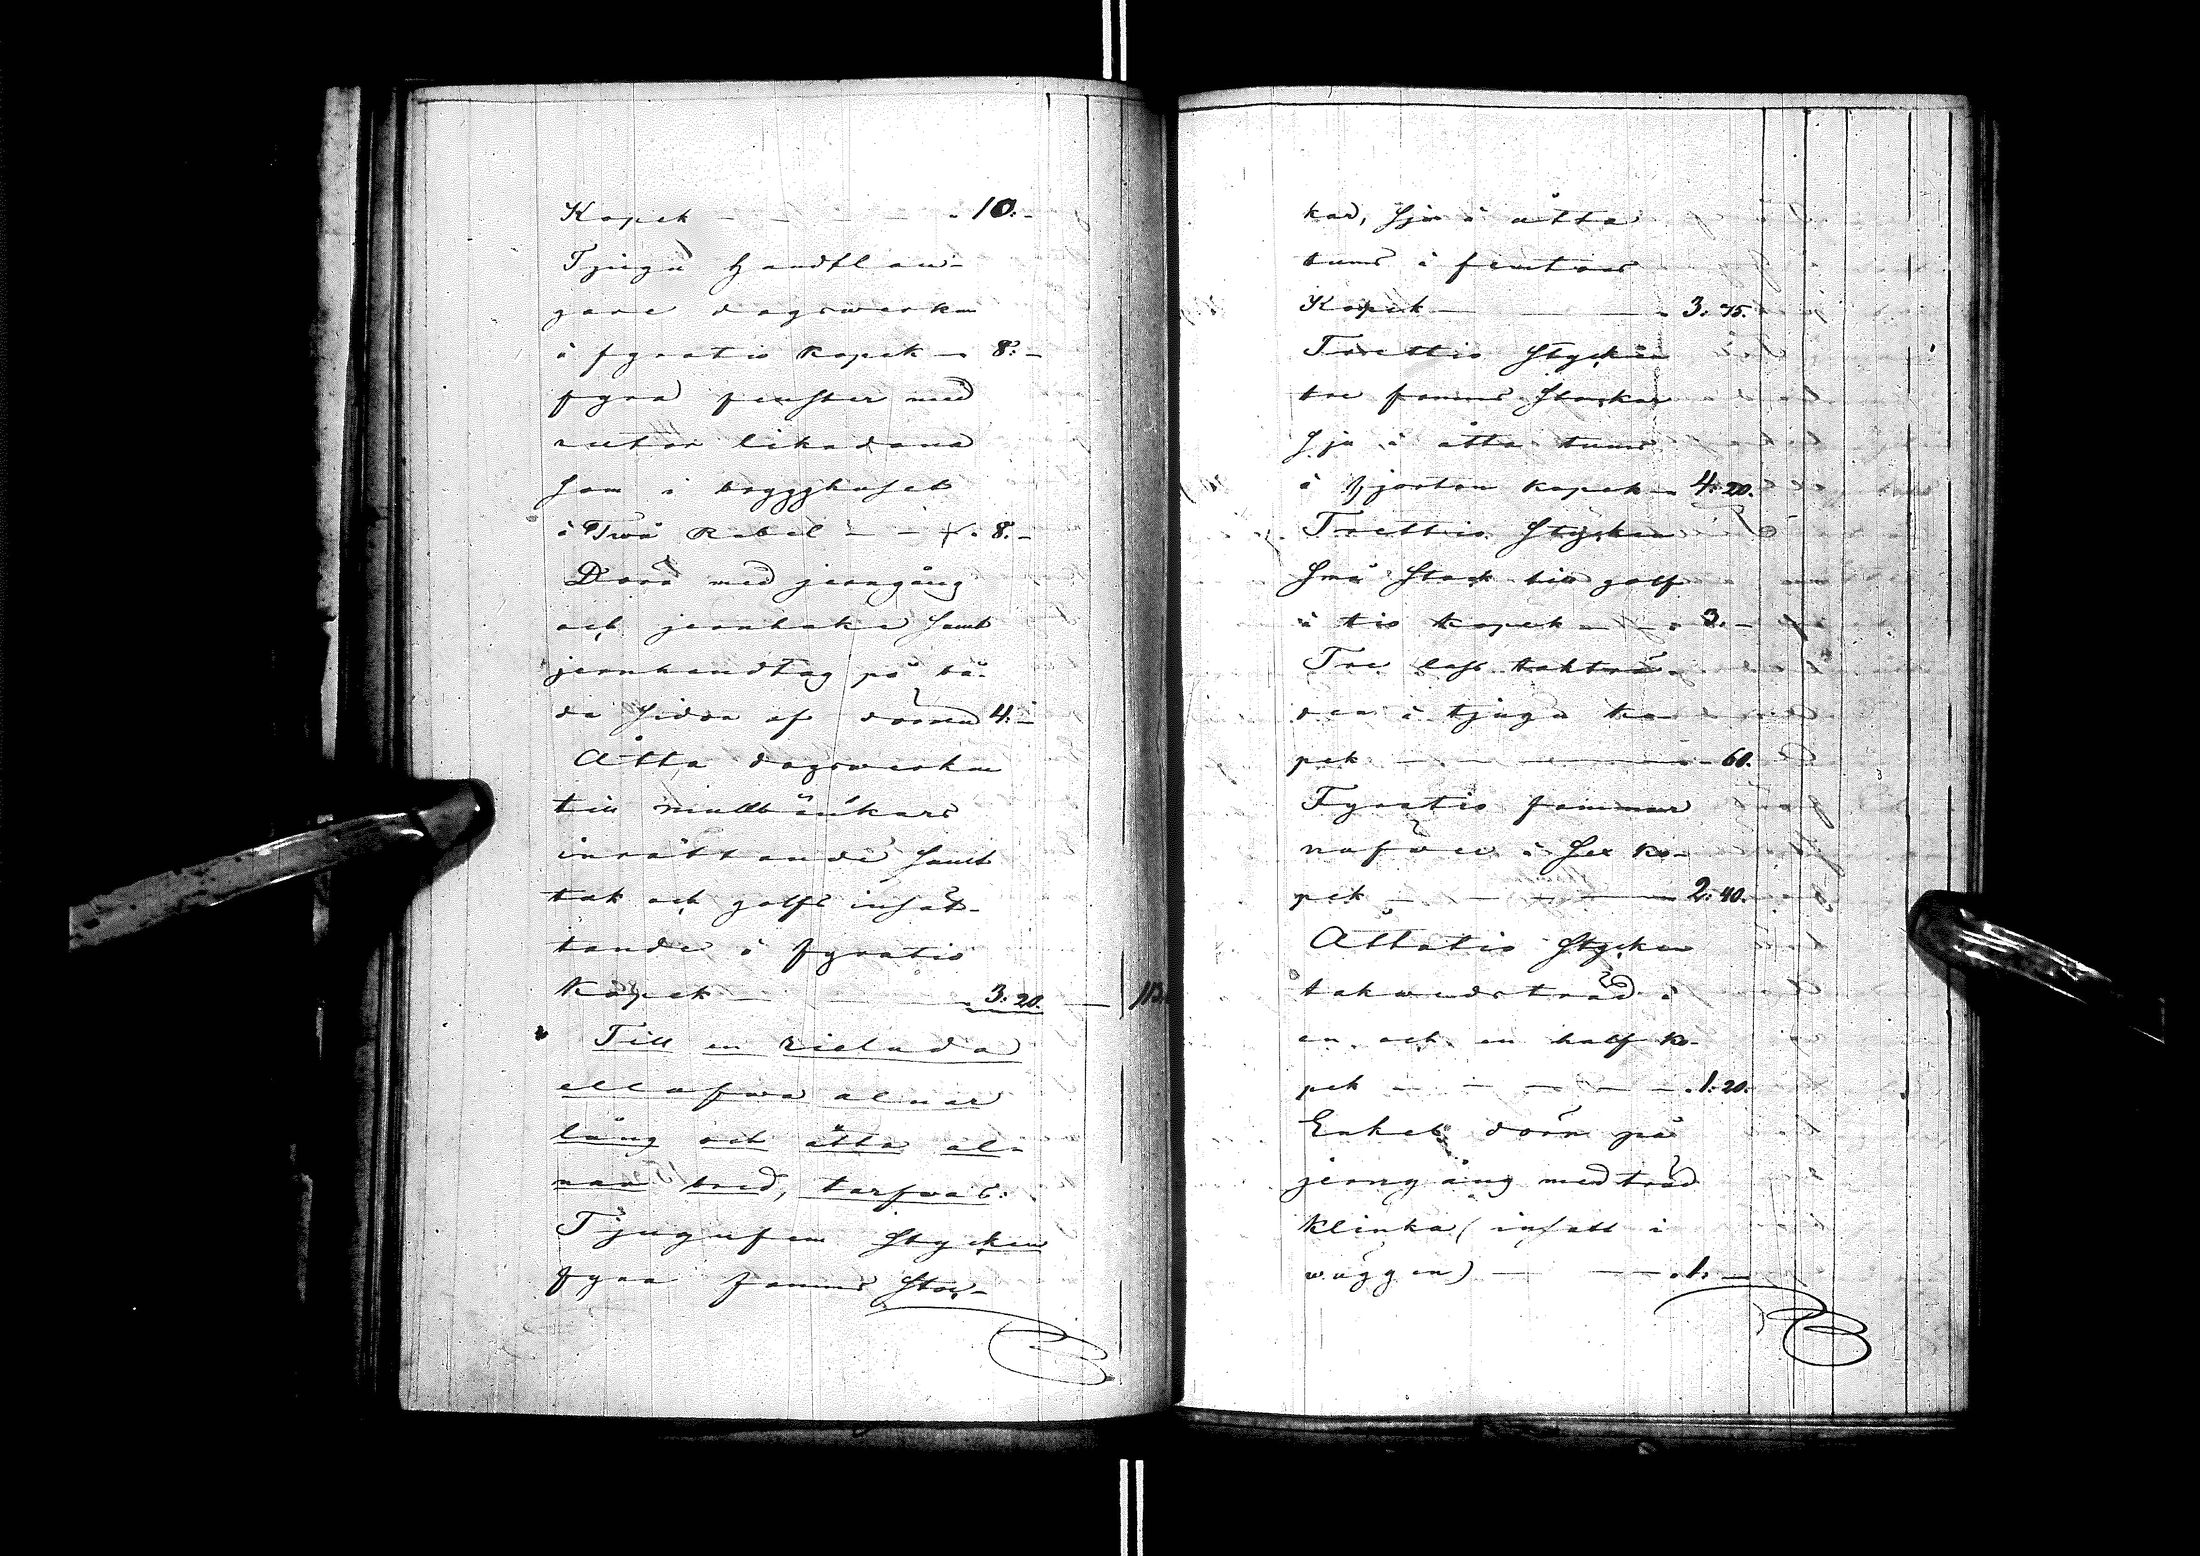 Kopek — — — — 10.-
Tjugu handtlan-
gare dagswerken
à fyratio kopek - 8.-
fyra fenster med
rutor likadana
som i bygghuset
à Twå Rubel — — 8.-
Dörr med jerngång
och jernhake samt
jernhandtag på bå-
da sidor af dörren 4.-
Åtta dagswerken
till mullbänkars
inrättande samt
tak och golfs insät-
tande à fyratio
Kopek — — 3. 20. —
Till en rielada
ellofwa alnar
lång och åtta al-
nar bred, torfwas:
Tjugufem stycken
fyra famns stoc-
kar, sju à åtta
tums à femton
Kopek — — 3. 75.
Trettio stycken
tre famns stockar
sju à åtta tums
à fjorton kopek - 4. 20.
Trettio stycken
små stock till golf
à tio kopek — — 3.-
Tre lass takträ-
den à tjugu ko-
pek — — — 60.
Fyratio famnar
näfwer à sex ko-
pek — — — 2. 40.
Åttatio stycken
takwedsträd à
en och en half ko-
pek — — — 1. 20.
Enkel dörr på
jerngång med träd
klinka (insatt i
wäggen) — — 1. —